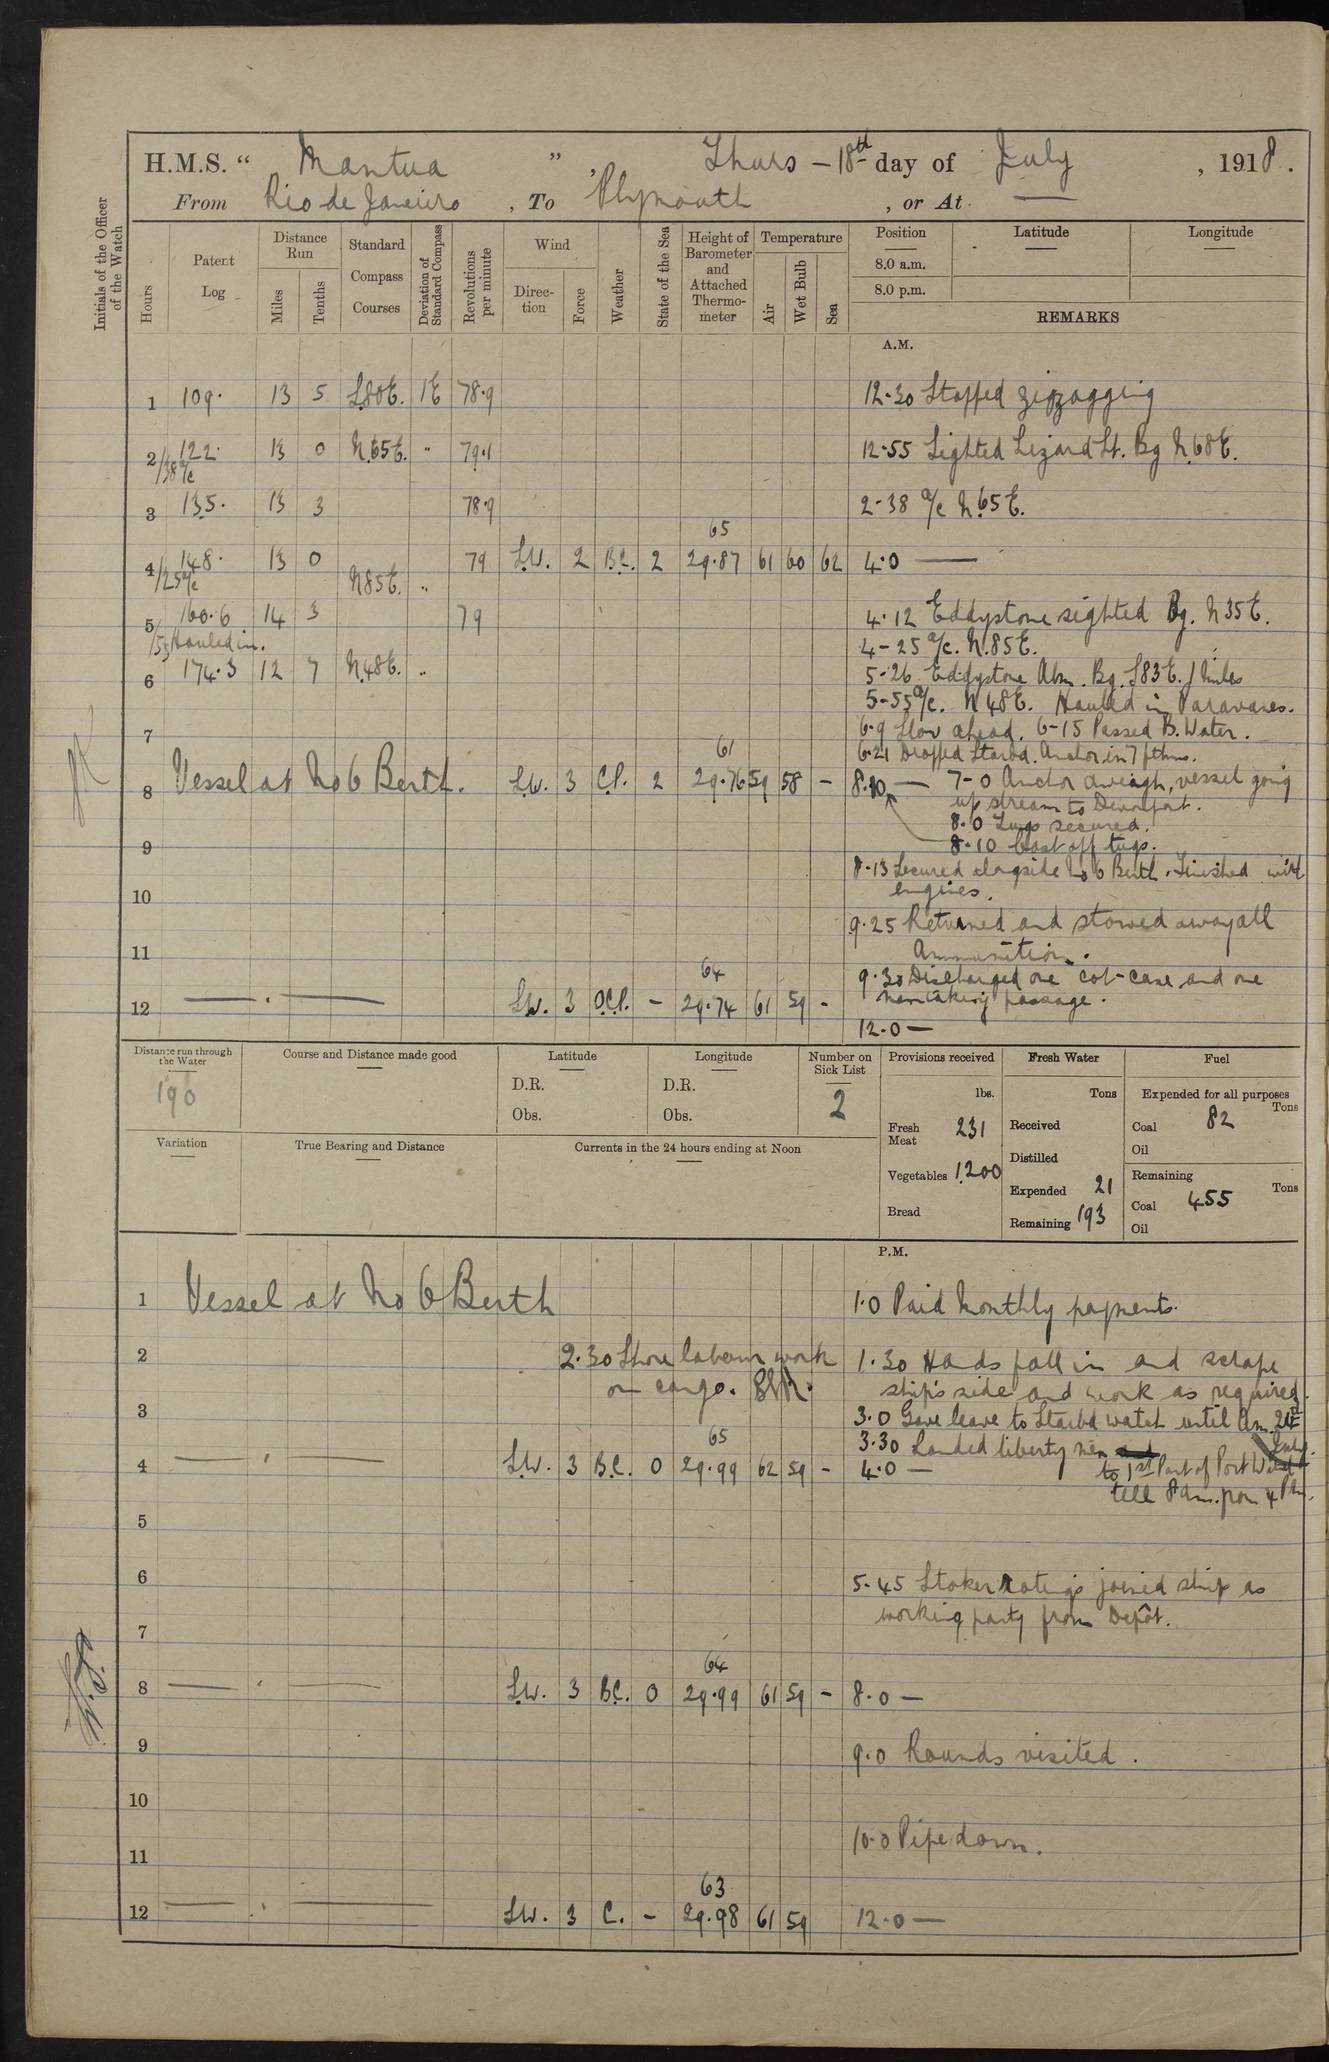 H.M.S. “ Mantua ” , Thurs – 18th day of July , 1918.
From Rio de Janeiro , To Plymouth , or At —
Initials of the Officer of the Watch
Hours
Patent Log
Distance Run
Miles
Tenths
Standard Compass Courses
Deviation of Standard Compass
Revolutions per minute
Wind
Direction
Force
Weather
State of the Sea
Height of Barometer and Attached Thermometer
Temperature
Air
Wet Bulb
Sea
Position
8.0 a.m.
8.0 p.m.
Latitude
Longitude
REMARKS
A.M.
1 109. 13 5 S.80E. 1E 78.9 12.30 Stopped zigzagging
2 122. 13 0 N.65E. " 79.1 12.55 Sighted Lizard Lt. Bg N.68E.
/38 a/c
3 135. 13 3 78.9 2-38 a/c N.65E.
65
4 148. 13 0 79 S.W. 2 B.C. 2 29.87 61 60 62 4.0 —
/25 a/c N85E. "
5 160.6 14 3 79 4.12 Eddystone sighted Bg. N35E.
/55 Hauled in. 4-25 a/c. N.85E.
6 174.3 12 7 N.48E. " 5-26 Eddystone Abm. Bg. S83E. / miles
5-55 a/c. N48E. Hauled in Paravanes.
7 6.9 Slow ahead. 6-15 Passed B. Water.
61 6.21 Dropped Starbd. Anchor in 7 fthms.
8 Vessel at No 6 Berth. S.W. 3 C.P. 2 29.76 59 58 – 8.10 — 7-0 Anchor aweigh, vessel going
up stream to Devonport.
8.0 Tugs secured.
9 8.10 Cast off tugs.
8.13 Secured alongside No 6 Berth. Finished with
10 engines.
9.25 Returned and stowed away all
11 Ammunition.
64 9.30 Discharged one cot-case and one
12 — . — S.W. 3 O.C.P. – 29.74 61 59 – man taking passage.
12.0 —
Distance run through the Water
190
Course and Distance made good
Latitude
D.R.
Obs.
Longitude
D.R.
Obs.
Number on Sick List
2
Provisions received
lbs.
Fresh Meat 231
Vegetables 1200
Bread
Fresh Water
Tons
Received
Distilled
Expended 21
Remaining 193
Fuel
Expended for all purposes
Tons
Coal 82
Oil
Remaining
Tons
Coal 455
Oil
Variation
True Bearing and Distance
Currents in the 24 hours ending at Noon
P.M.
1 Vessel at No 6 Berth 1.0 Paid Monthly payments.
2 2.30 Shore labour work 1.30 Hands fall in and scrape
on cargo. ship's side and work as required.
3 3.0 Gave leave to Starbd watch until Am. 21st
65 July.
3.30 Landed liberty men
4 — . — S.W. 3 B.C. 0 29.99 62 59 – 4.0 — to 1st Part of Port Watch
till 8 am. from 4 Pm.
5
6 5.45 Stoker Ratings joined ship as
working party from Depôt.
7
64
8 — . — S.W. 3 B.C. 0 29.99 61 59 – 8.0 —
9 9.0 Rounds visited.
10
10.0 Pipe down.
11
63
12 — . — S.W. 3 C. – 29.98 61 59 12.0 —